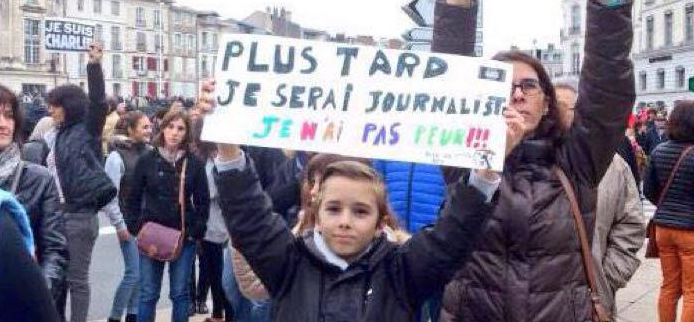 JE SUIS
CHARLIE
PLUS TARD
JE SERAI JOURNALISTE
JE N'AI PAS PEUR!!!